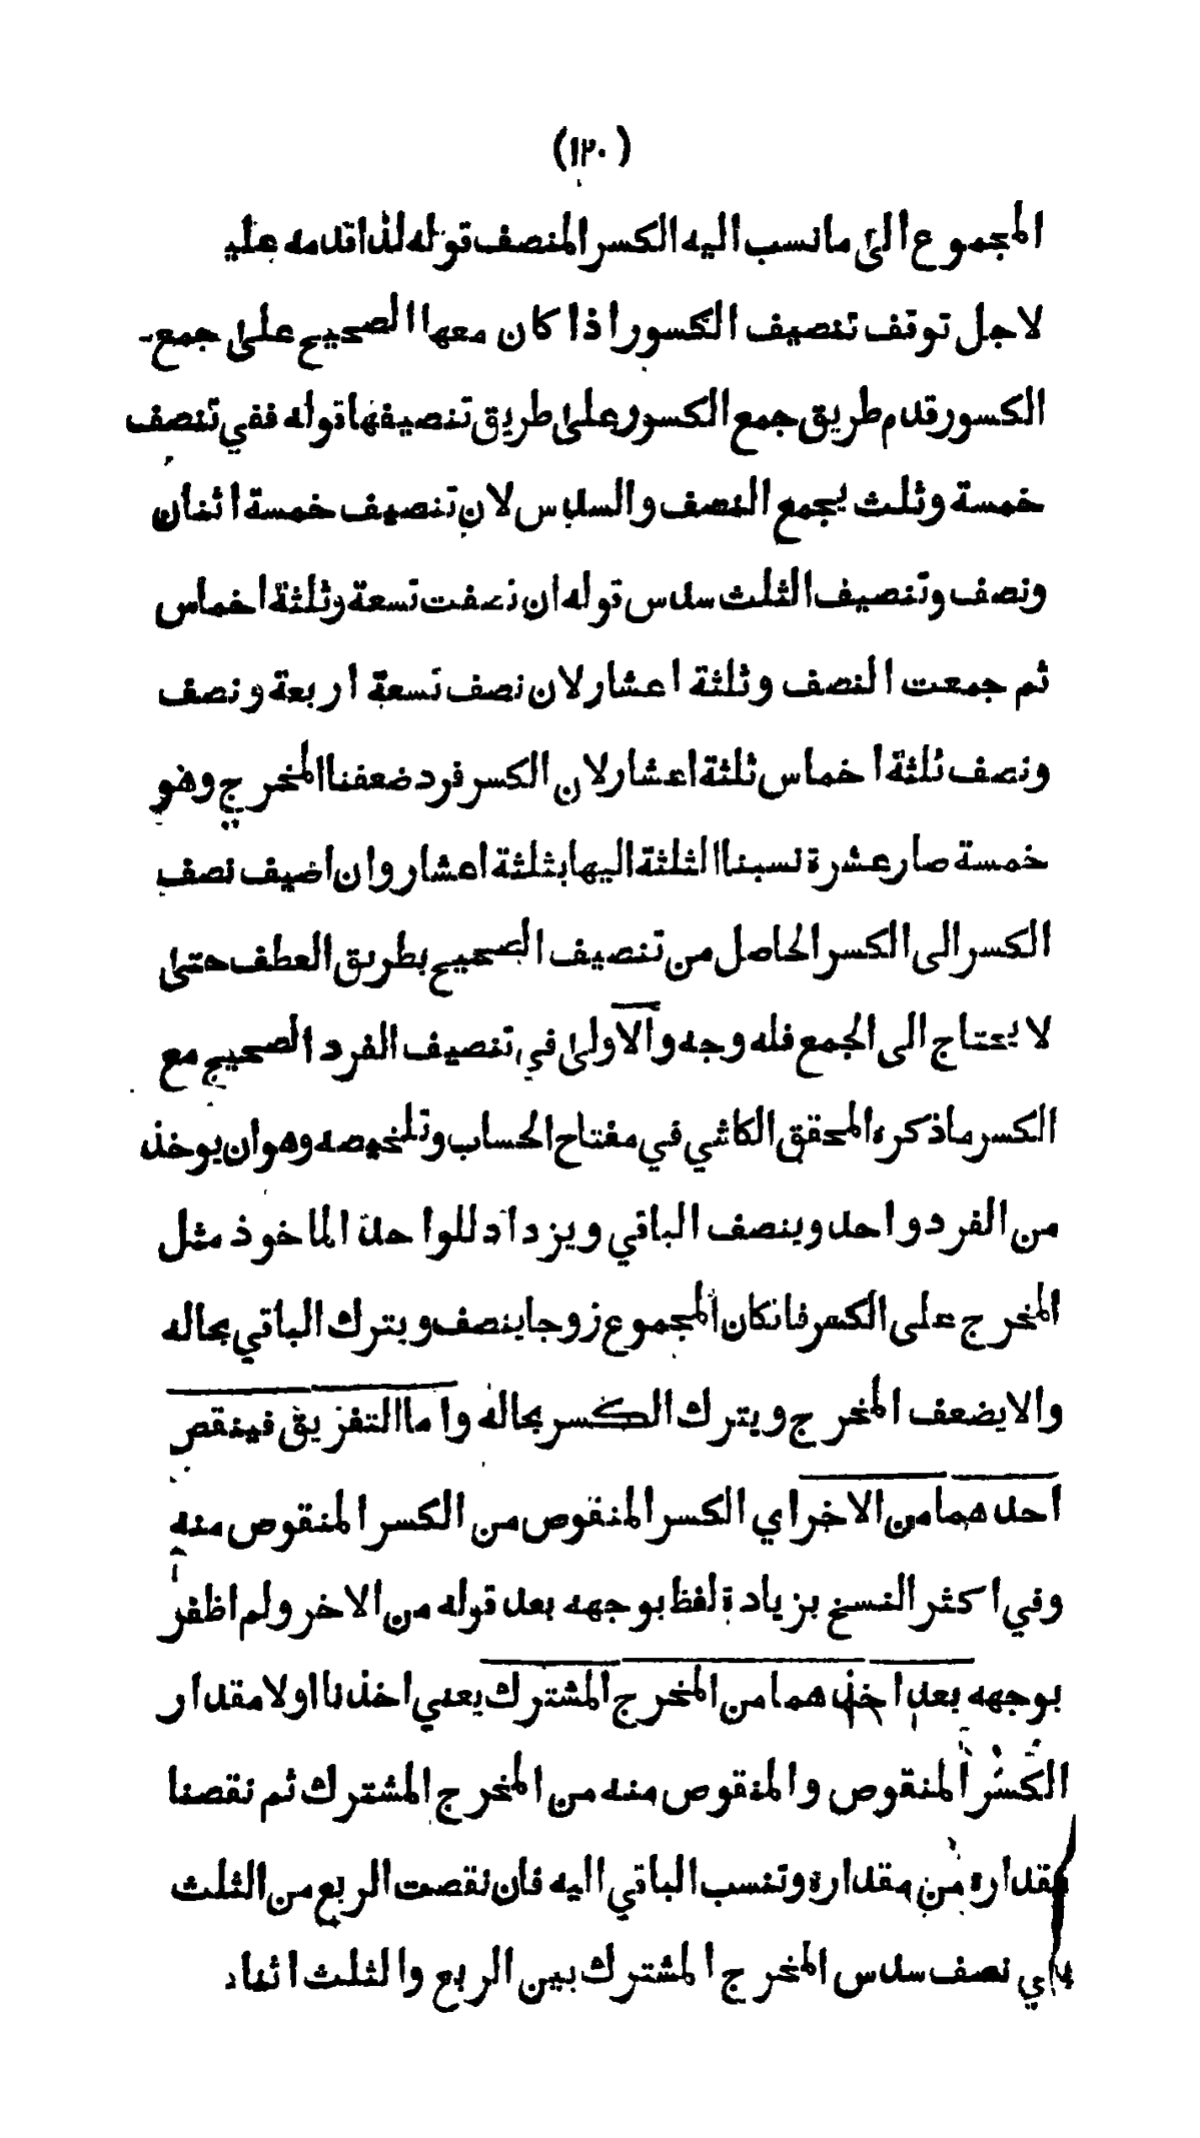 (١٢٠)
المجموع الى ما نسب اليه الكسر المنصف قوله لذا قدمه عليه
لاجل توقف تنصيف الكسور اذا كان معها الصحيح على جمع
الكسور قدم طريق جمع الكسور على طريق تنصيفها قوله ففي تنصيف
خمسة وثلث يجمع النصف والسدس لان تنصيف خمسة اثنان
ونصف وتنصيف الثلث سدس قوله ان نصفت تسعة وثلثة اخماس
ثم جمعت النصف وثلثة اعشار لان نصف تسعة اربعة ونصف
ونصف ثلثة اخماس ثلثة اعشار لان الكسر فرد ضعفنا المخرج وهو
خمسة صار عشرة نسبنا الثلثة اليها بثلثة اعشار وان اضيف نصف
الكسر الى الكسر الحاصل من تنصيف الصحيح بطريق العطف حتى
لا يحتاج الى الجمع فله وجه والاولى في تنصيف الفرد الصحيح مع
الكسر ما ذكره المحقق الكاشي في مفتاح الحساب وتلخيصه وهو ان يوخذ
من الفرد واحد وينصف الباقي ويزداد للواحد الماخوذ مثل
المخرج على الكسر فانكان المجموع زوجا ينصف ويترك الباقي بحاله
والا يضعف المخرج ويترك الكسر بحاله واما التفريق فينقص
احدهما من الاخر اي الكسر المنقوص من الكسر المنقوص منه
وفي اكثر النسخ بزيادة لفظ بوجهه بعد قوله من الاخر ولم اظفر
بوجهه بعد اخذهما من المخرج المشترك يعني اخذنا اولا مقدار
الكسر المنقوص والمنقوص منه من المخرج المشترك ثم نقصنا
مقداره من مقداره وتنسب الباقي اليه فان نقصت الربع من الثلث
اي نصف سدس المخرج المشترك بين الربع والثلث اثنا